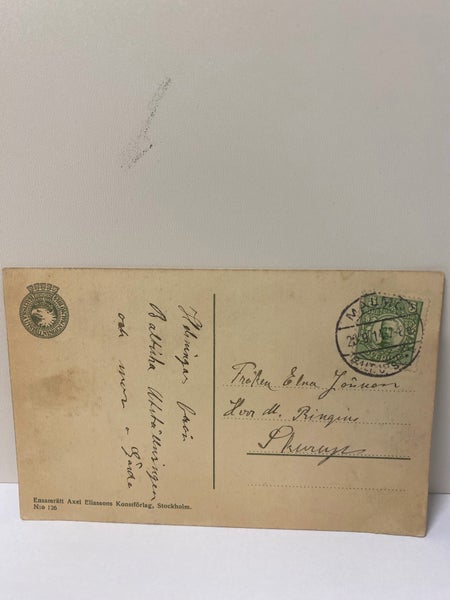 Helsningar från
Baltiska Utställningen
och mor o Gärda
Fröken Elna Jönsson
Hvor M. Ringius
Skurup
MALMÖ
BALT. UTST.
Ensamrätt Axel Eliassons Konstförlag, Stockholm.
N:o 126